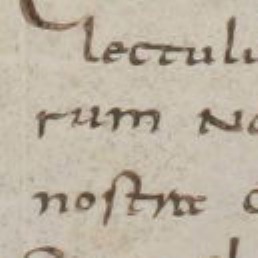 lectulu
rum No
nostra c